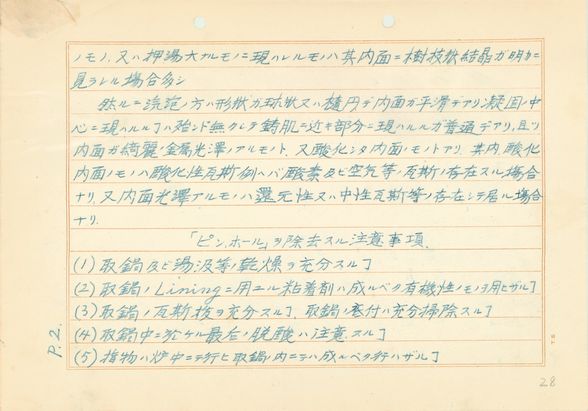 ノモノ、又ハ押湯大ナルモノニ現ハレルモノハ其内面ニ樹枝狀結晶ガ明カニ
見ラレル場合多シ
然ルニ ノ方ハ形狀ガ球狀又ハ楕円デ内面ガ平滑デアリ凝固ノ中
心ニ現ハルルヿハ殆ンド無クシテ鋳肌ニ近キ部分ニ現ハルルガ普通デアリ、且ツ
内面ガ綺麗ノ金属光澤ノアルモノト、又酸化シタ内面ノモノトアリ 其内 酸化
内面ノモノハ酸化性瓦斯例ヘバ酸素及ビ空気等ノ瓦斯ノ存在スル場合
ナリ、又内面光澤アルモノハ還元性又ハ中性瓦斯等ノ存在シテ居ル場合
ナリ.
「ピンホール」ヲ除去スル注意事項.
(1) 取鍋及ビ湯汲等ノ乾燥ヲ充分スルヿ
(2) 取鍋ノLiningニ用ユル粘着剤ハ成ルベク有機性ノモノヲ用ヒザルヿ
(3) 取鍋ノ瓦斯抜ヲ充分スルヿ、取鍋ノ底付ハ充分掃除スルヿ
(4) 取鍋中ニ於ケル最后ノ脱酸ハ注意スルヿ
(5) 揩物ハ炉中ニテ行ヒ取鍋ノ内ニテハ成ルベク行ハザルヿ
P.2.
28